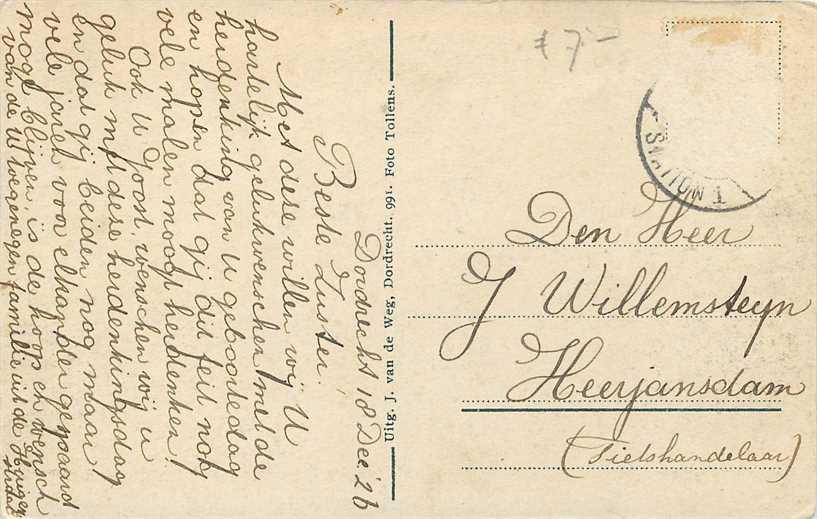 Dordrecht 18 Dec. '26
Beste Zuster!
Met deze willen wij U
hartelijk gelukwenschen met de
herdenking van U geboortedag
en hopen dat gij dit feit nog
vele malen moog herdenken!
Ook U Joost, wenschen wij u
geluk met deze herdenkingsdag
en dat gij beiden nog maar
vele jaren voor elkander gespaard
mogt blijven is de hoop en wensch
van de U toegenegen familie uit de
Uitg. J. van de Weg, Dordrecht. 991. Foto Tollens.
€ 7-
Den Heer
J Willemsteyn
Heerjansdam
(Fietshandelaar)